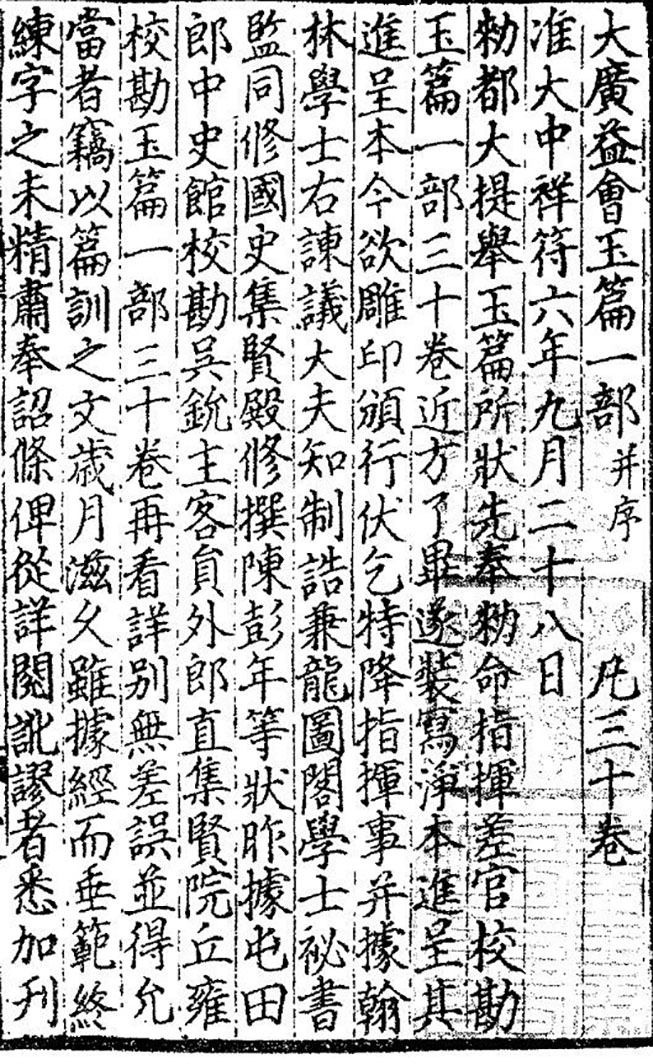 大廣益會玉篇一部并序　凡三十卷
准大中祥符六年九月二十八日
勑都大提舉玉篇所狀先奉勑命指揮差官校勘
玉篇一部三十卷近方了畢遂裝寫淨本進呈其
進呈本今欲雕印頒行伏乞特降指揮事并據翰
林學士右諫議大夫知制誥兼龍圖閣學士祕書
監同修國史集賢殿修撰陳彭年等狀昨據屯田
郎中史館校勘吳銳主客員外郎直集賢院丘雍
校勘玉篇一部三十卷再看詳别無差誤並得允
當者竊以篇訓之文歲月滋乆雖據經而垂範終
練字之未精肅奉詔條俾從詳閱訛謬者悉加刋